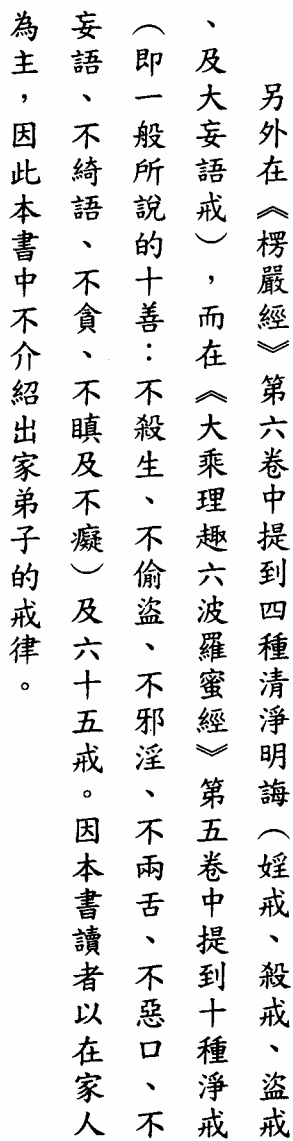 另外在《楞嚴經》第六卷中提到四種清淨明誨（婬戒、殺戒、盜戒
、及大妄語戒），而在《大乘理趣六波羅蜜經》第五卷中提到十種淨戒
（即一般所說的十善：不殺生、不偷盜、不邪淫、不兩舌、不惡口、不
妄語、不綺語、不貪、不瞋及不癡）及六十五戒。因本書讀者以在家人
為主，因此本書中不介紹出家弟子的戒律。